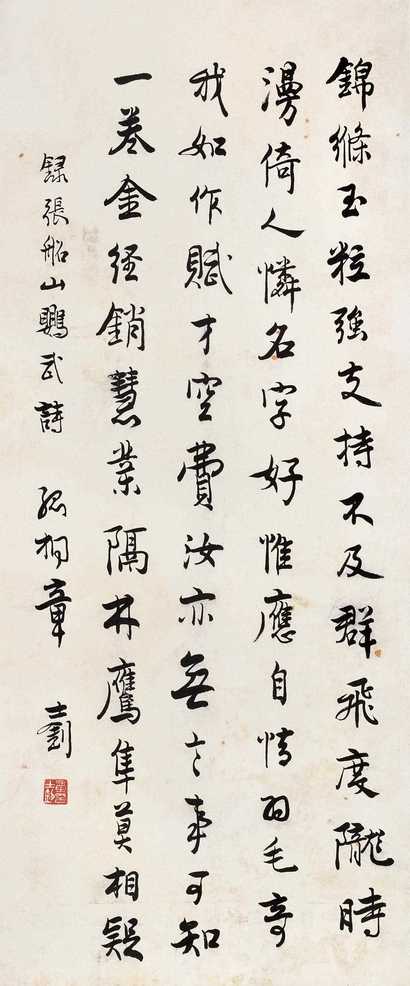 錦絛玉粒強支持不及群飛度隴時
漫倚人憐名字好惟應自惜羽毛奇
我如作賦才空費汝亦無言事可知
一卷金經銷慧業隔林鷹隼莫相疑
錄張船山鸚武詩 孤桐章士釗